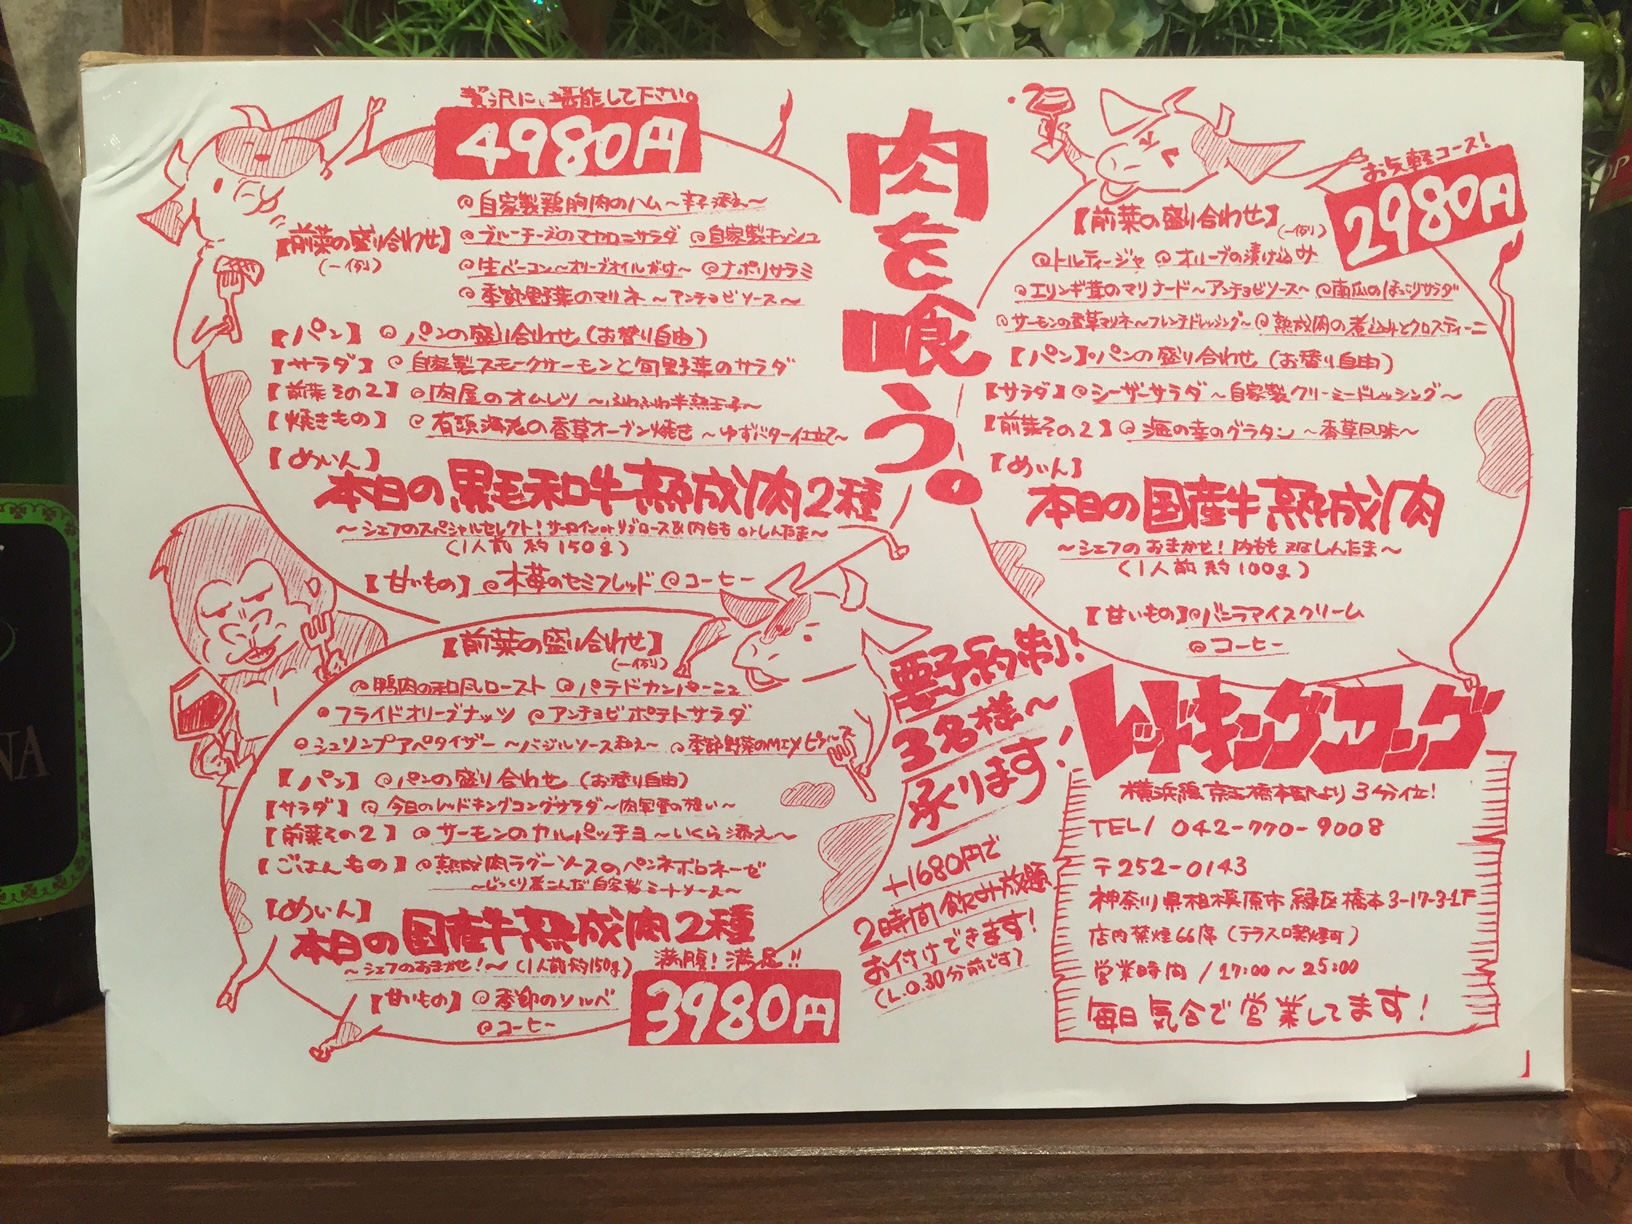 贅沢に、堪能して下さい。
4980円
【前菜の盛り合わせ】
(一例)
@自家製鶏胸肉のハム〜辛子添え〜
@ブルーチーズのマカロニサラダ @自家製キッシュ
@生ベーコン〜オリーブオイルがけ〜 @ナポリサラミ
@季節野菜のマリネ〜アンチョビソース〜
【パン】@パンの盛り合わせ(お替り自由)
【サラダ】@自家製スモークサーモンと旬野菜のサラダ
【前菜その2】@肉屋のオムレツ〜ふわふわ半熟玉子〜
【焼きもの】@有頭海老の香草オーブン焼き〜ゆずバター仕立て〜
【めいん】
本日の黒毛和牛熟成肉2種
〜シェフのスペシャルセレクト!サーロインorリブロース&内もも orしんたま〜
(1人前 約150g)
【甘いもの】@木苺のセミフレッド @コーヒー
肉を喰う。
お気軽コース!
2980円
【前菜の盛り合わせ】
(一例)
@トルティージャ @オリーブの漬け込み
@エリンギ茸のマリナード〜アンチョビソース〜 @南瓜のほっこりサラダ
@サーモンの香草マリネ〜フレンチドレッシング〜 @熟成肉の煮込みとクロスティーニ
【パン】・パンの盛り合わせ(お替り自由)
【サラダ】@シーザーサラダ〜自家製クリーミードレッシング〜
【前菜その2】@海の幸のグラタン〜香草風味〜
【めいん】
本日の国産牛熟成肉
〜シェフのおまかせ!内もも 又はしんたま〜
(1人前約100g)
【甘いもの】@バニラアイスクリーム
@コーヒー
【前菜の盛り合わせ】
(一例)
@鴨肉の和風ロースト @パテドカンパーニュ
@フライドオリーブナッツ @アンチョビポテトサラダ
@シュリンプアペタイザー〜バジルソース和え〜 @季節野菜のMIXピクルス
【パン】@パンの盛り合わせ(お替り自由)
【サラダ】@今日のレッドキングコングサラダ〜肉军曹の想い〜
【前菜その2】@サーモンのカルパッチョ〜いくら添え〜
【ごはんもの】@熟成肉ラグーソースのペンネボロネーゼ
〜じっくり煮こんだ自家製ミートソース〜
【めいん】
本日の国産牛熟成肉2種
〜シェフのおまかせ!〜(1人前約150g)
【甘いもの】@季節のソルベ
@コーヒー
満腹!満足!!
3980円
要予約制!
3名様〜
承ります!
+1680円で
2時間飲み放題
お付けできます!
(L.O.30分前です)
レッドキングコング
横浜線京王橋本駅より3分位!
TEL/ 042-770-9008
〒252-0143
神奈川県相模原市緑区橋本3-17-3-1F
店内禁煙66席(テラス口喫煙可)
営業時間/17:00〜25:00
毎日気合で営業してます!